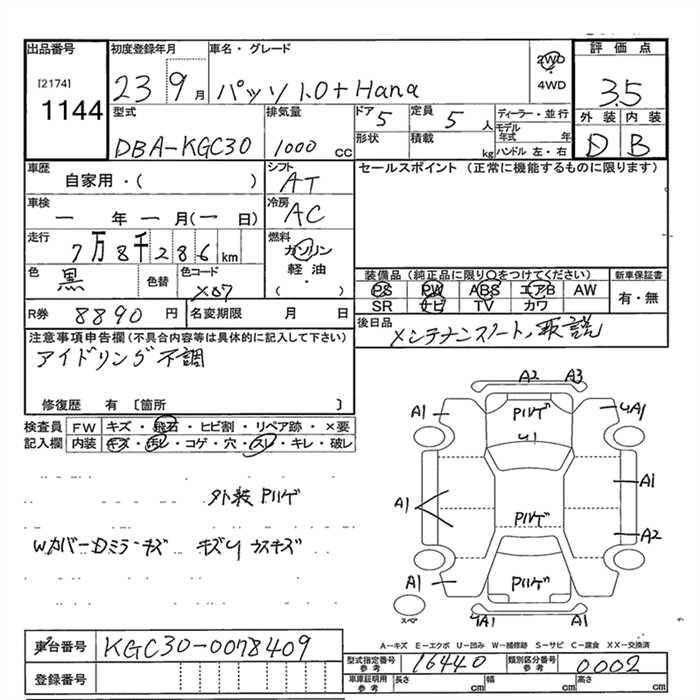 出品番号 初度登録年月 車名・グレード 評価点
[2174] 1144
23 9月 パッソ 1.0+Hana
2WD
4WD
3.5
外装 内装
D B
型式 排気量 ドア 定員 ディーラー・並行
DBA-KGC30 1000 cc 5 5人
形状 積載 kg
モデル年式 年
ハンドル 左・右
車歴 シフト セールスポイント (正常に機能するものに限ります)
自家用・( ) AT
車検 冷房
一年一月(一日) AC
走行 燃料
7万8千286km ガソリン
軽油・
( )
色 色替 色コード
黒 X07
装備品 (純正品に限り○をつけてください) 新車保証書
PS PW ABS エアB AW 有・無
SR ナビ TV カワ
R券 8890円 名変期限 月 日
後日品 メンテナンスノート、取説
注意事項申告欄(不具合内容等は具体的に記入して下さい)
アイドリング不調
修復歴 有 [箇所 ]
検査員 FW キズ・飛石・ヒビ割・リペア跡・×要
記入欄 内装 キズ・汚レ・コゲ・穴・スレ・キレ・破レ
外装 Pハゲ
Wカバー Dミラーキズ キズU ウスキズ
A2 A3
A1 Pハゲ UA1
U1
A1
A1 Pハゲ
A2
A1 Pハゲ
スペア
A1 A1
A-キズ E-エクボ U-凹み W-補修跡 S-サビ C-腐食 XX-交換済
車台番号 KGC30-0078409
型式指定番号 参考 16440 類別区分番号 参考 0002
登録番号
車庫証明用 参考 長さ cm 幅 cm 高さ cm